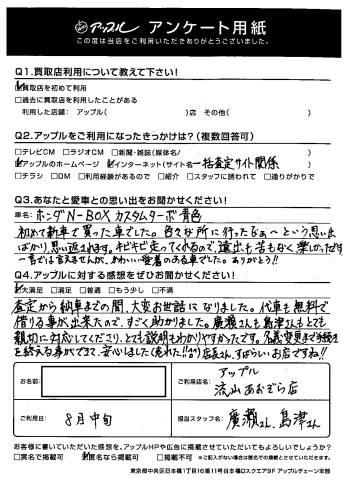 アップル アンケート用紙
この度は当店をご利用いただきありがとうございました。
Q1.買取店利用について教えて下さい!
☑買取店を初めて利用
□過去に買取店を利用したことがある
利用した店舗: アップル( )店 その他( )
Q2.アップルをご利用になったきっかけは?(複数回答可)
□テレビCM □ラジオCM □新聞・雑誌(媒体名/ )
☑アップルのホームページ ☑インターネット(サイト名 一括査定サイト関係 )
□チラシ □DM □利用経験があるので □紹介 □スタッフに誘われて □通りがかりで
Q3.あなたと愛車との思い出をお聞かせください!
車名: ホンダN-BOX カスタムターボ 青色
初めて新車で買った車でした。色々な所に行ったなぁ〜という思い出
ばかり、思い返されます。キビキビ走ってくれるので、遠出も苦もなく楽しかったです
一言では言えませんが、かわいい愛着のある車でした。ありがとう!!
Q4.アップルに対する感想をぜひお聞かせください!
☑大満足 □満足 □普通 □もう少し □不満
査定から納車までの間、大変お世話になりました。代車も無料で
借りる事が出来たので、すごく助かりました。廣瀬さんも島津さんもとても
親切に対応してくださり、とても説明もわかりやすかったです。名義変更まで手続き
を終える事ができて、安心しました(売れた!!的)店長さん、すばらしいお店ですね!!
お名前:
ご利用店名:
アップル
流山おおぞら店
ご利用日:
8月中旬
担当スタッフ名:
廣瀬さん、島津さん
お客様に書いていただいた感想を、アップルHPや広告に掲載させていただいてもよろしいでしょうか?
□実名で掲載可 ☑匿名なら掲載可 □掲載不可 ※ご記入がない場合は匿名での掲載とさせていただきます。
東京都中央区日本橋1丁目16番11号日本橋Dスクエア9F アップルチェーン本部